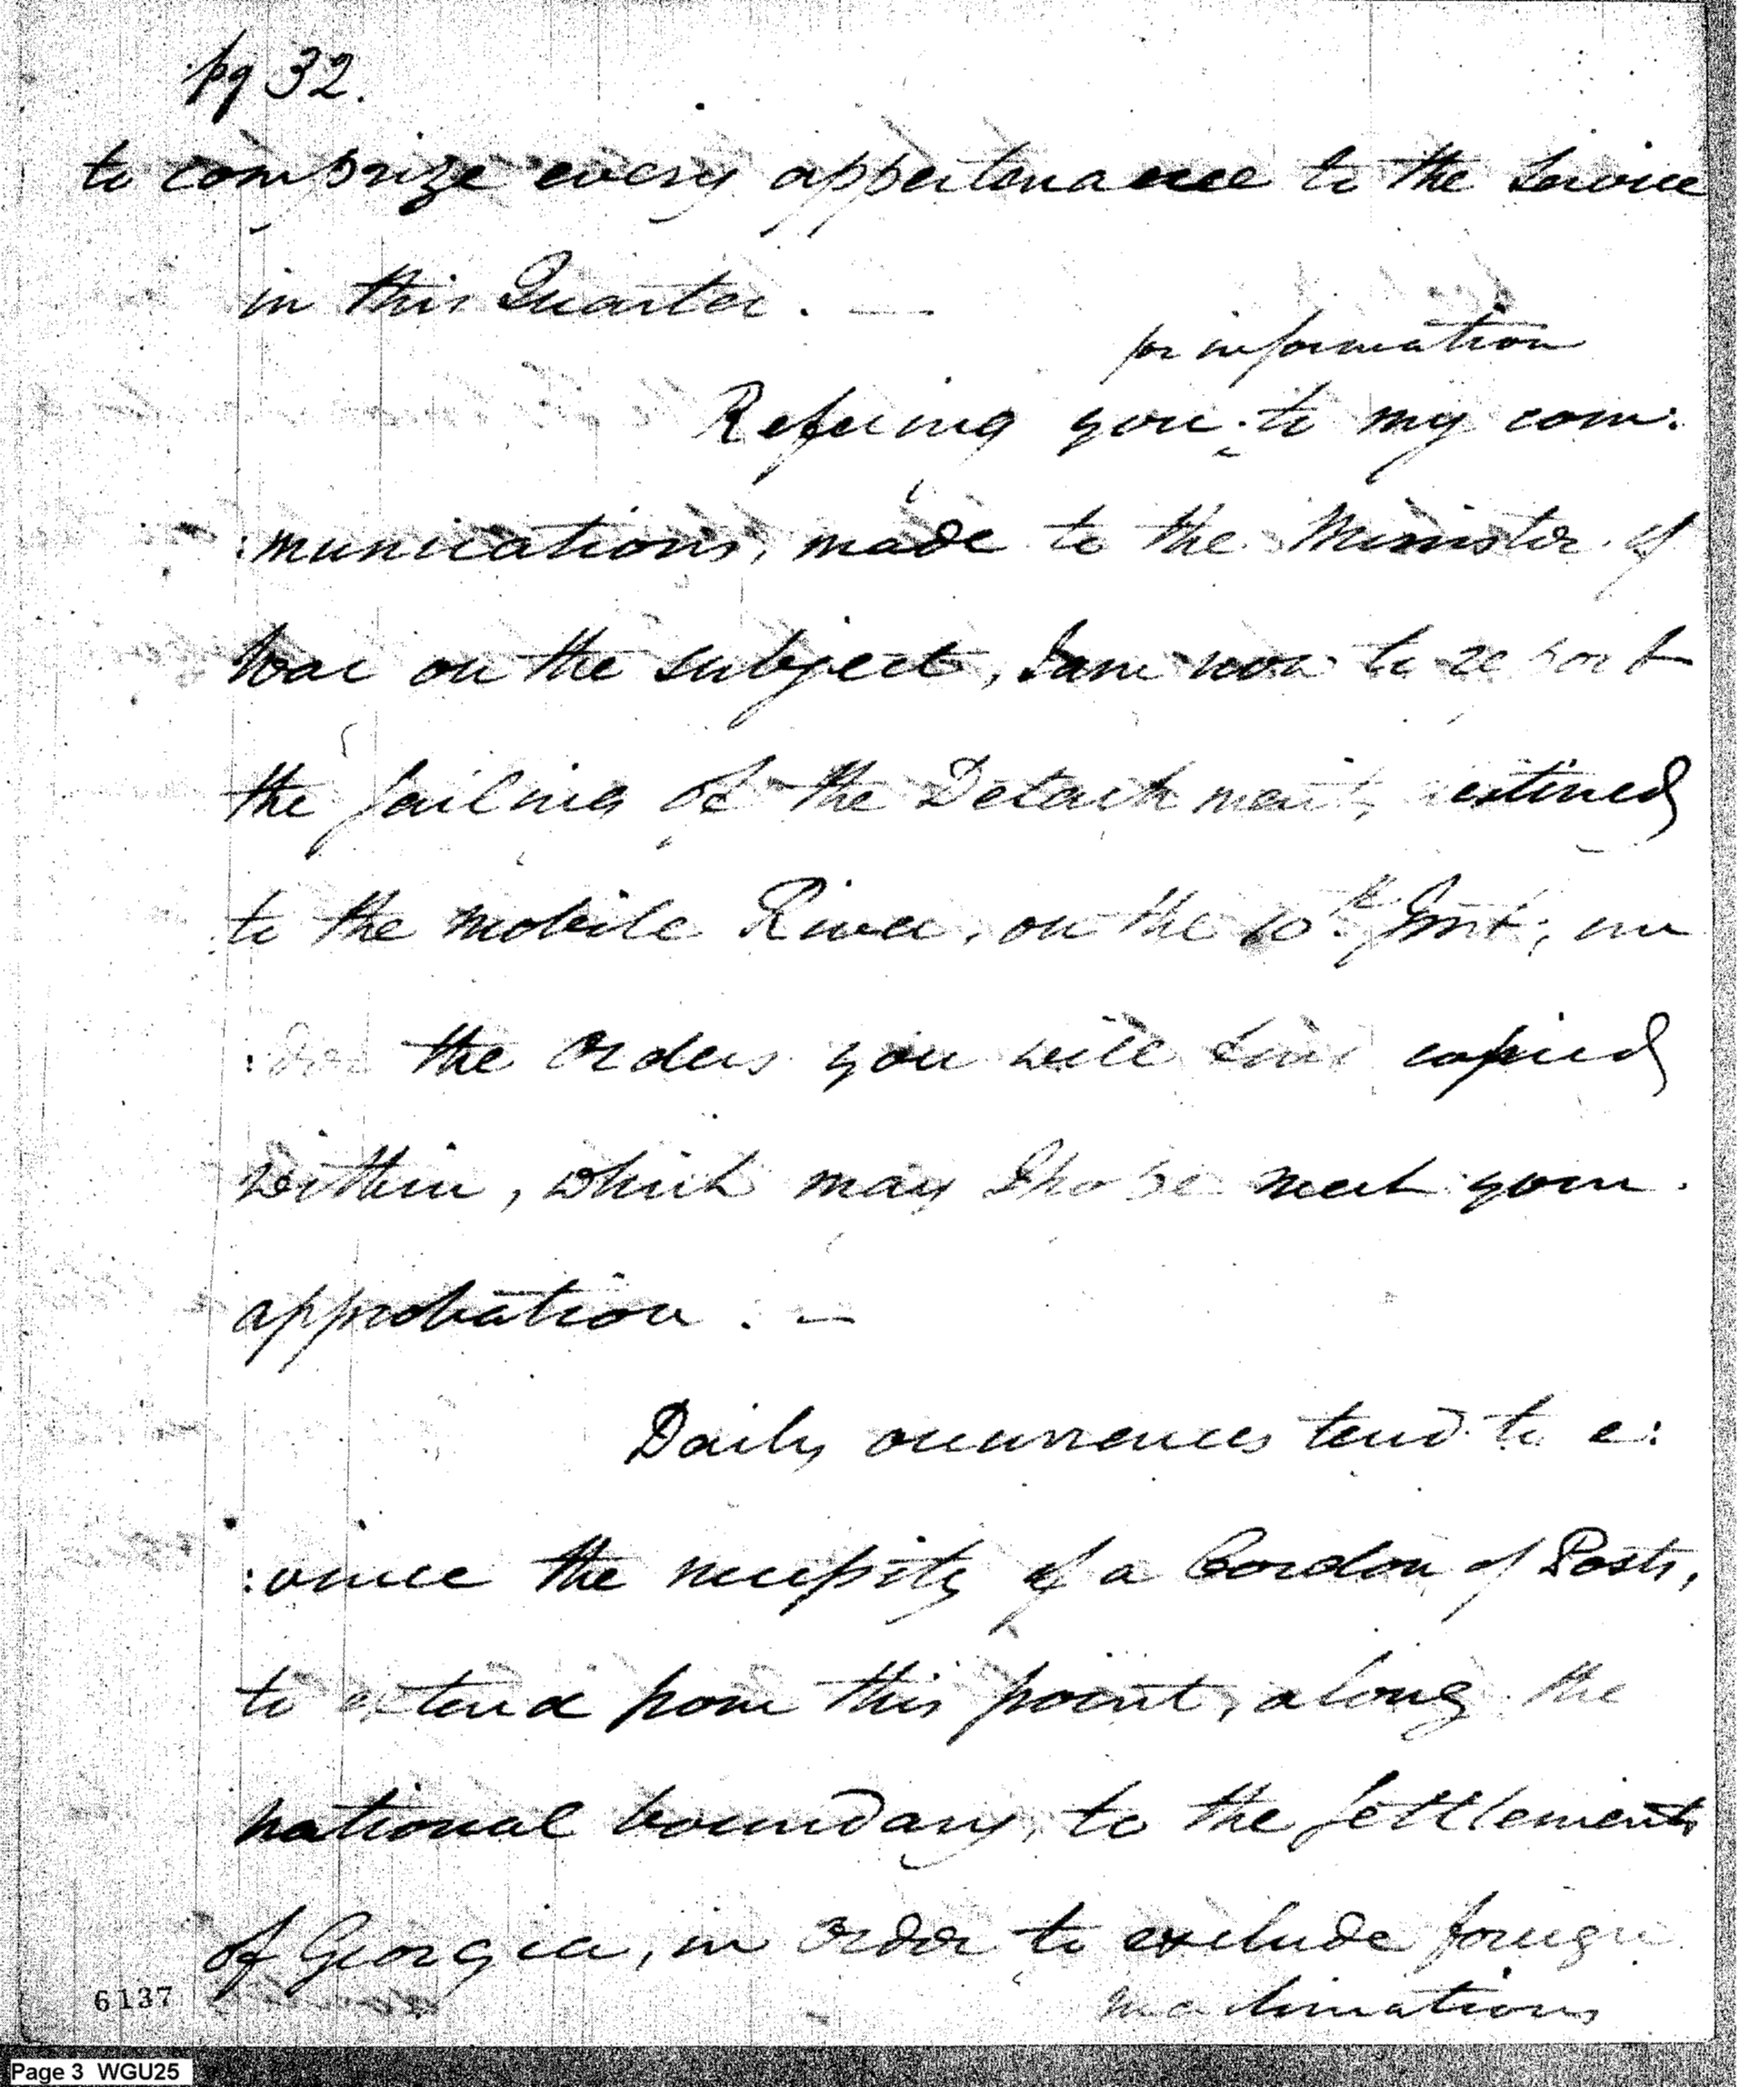 pg 32.
to comprize every appertenance to the Service
in this Quarter. —
for information
Refering you to my com:
:munications, made to the Minister of
War on the subject, I am now to report
the sailing of the Detachment, destined
to the Mobile River, on the 10th Inst, un
:der the Orders you will find copied
within, which may I hope meet your
approbation. —
Daily occurrences tend to e:
:vince the necessity of a Cordon of Posts,
to extend from this point, along the
national boundary, to the settlements
of Georgia, in order to exclude foreign
machinations
6137
Page 3 WGU25